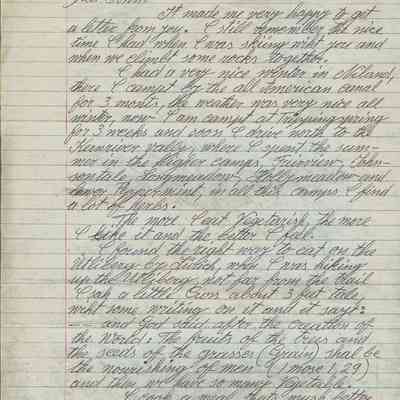 It made me very happy to get
a letter from you. I still remember the nice
time I had when I was skiing wiht you and
when we climbt some rocks together.
I had a very nice winter in Niland,
there I campt by the all American canal
for 3 monts, the weather was very nice all
winter, now I am campt at
for 3 weeks and soon I drive north to the
Kernriver valley, where I spent the sum-
mer in the higher camps, Fairview, John-
sondale, Horsmeadow, Hollymeadow and
Peppermint, in all this camps I find
a lot of herbs.
The more I eat vegetarish, the more
I like it and the better I feel.
I found the right way to eat on the
Utliberg by Zürich, why I was hiking
up the Utliberg, not far from the trail
I saw a little Cros about 3 feet tale,
wiht some writing on it and it says:
--- and God said after the creation of
the World: The fruits of the trees and
the seeds of the grasses (Grain) shal be
the nourishing of men (1 mose 1,29)
and then we have so many vegetable.
I cook a meal thats much better